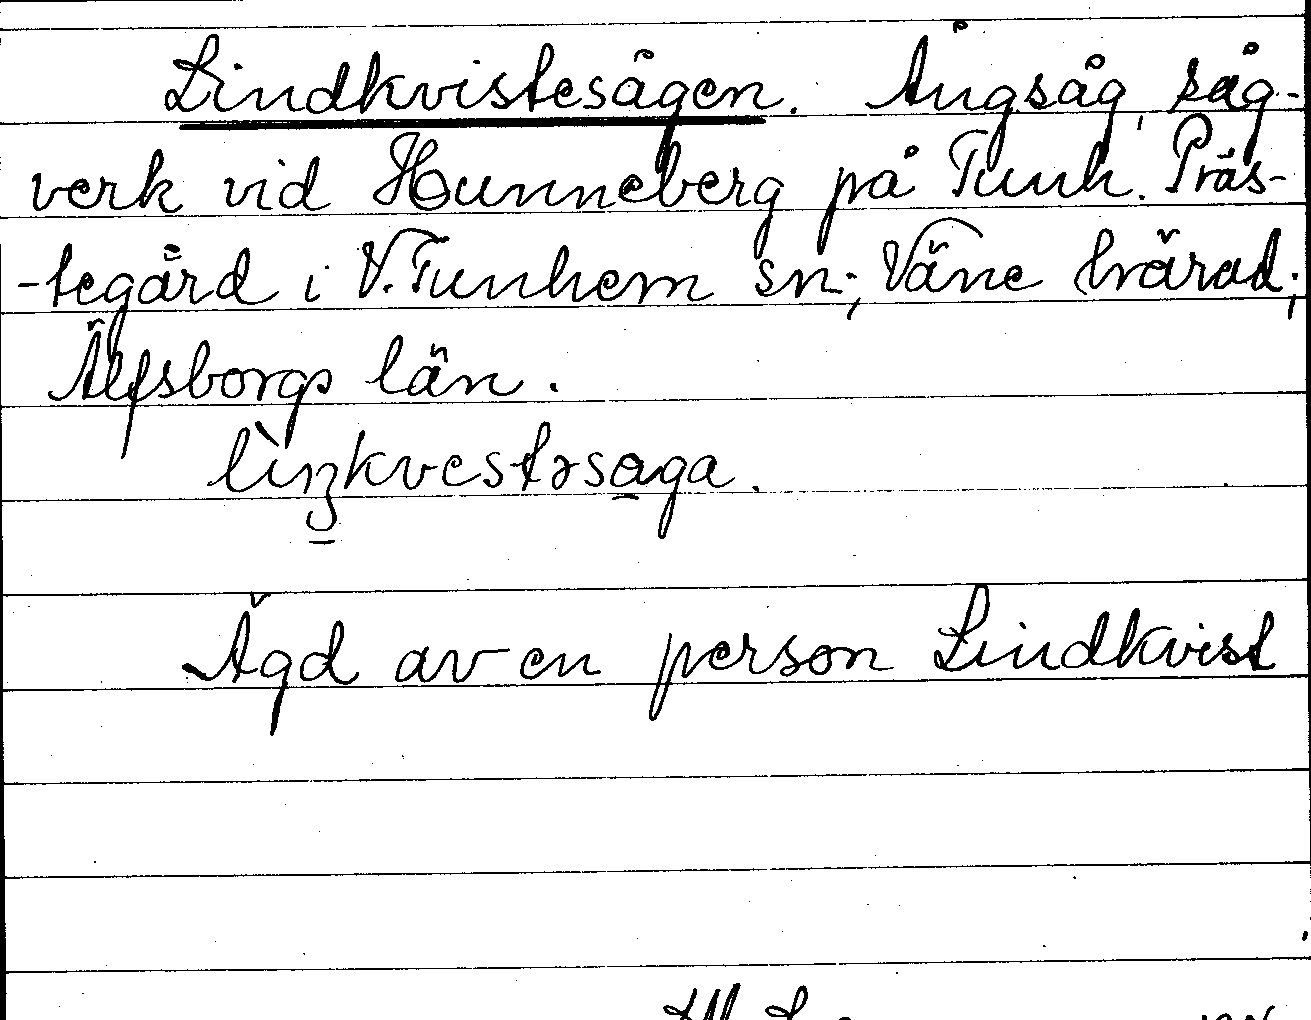 Lindkvistesågen. Ångsåg, såg-
verk vid Hunneberg på Tunh. Präs-
-tegård i V. Tunhem sn; Väne härad;
Älfsborgs län.
Ägd av en person Lindkvist